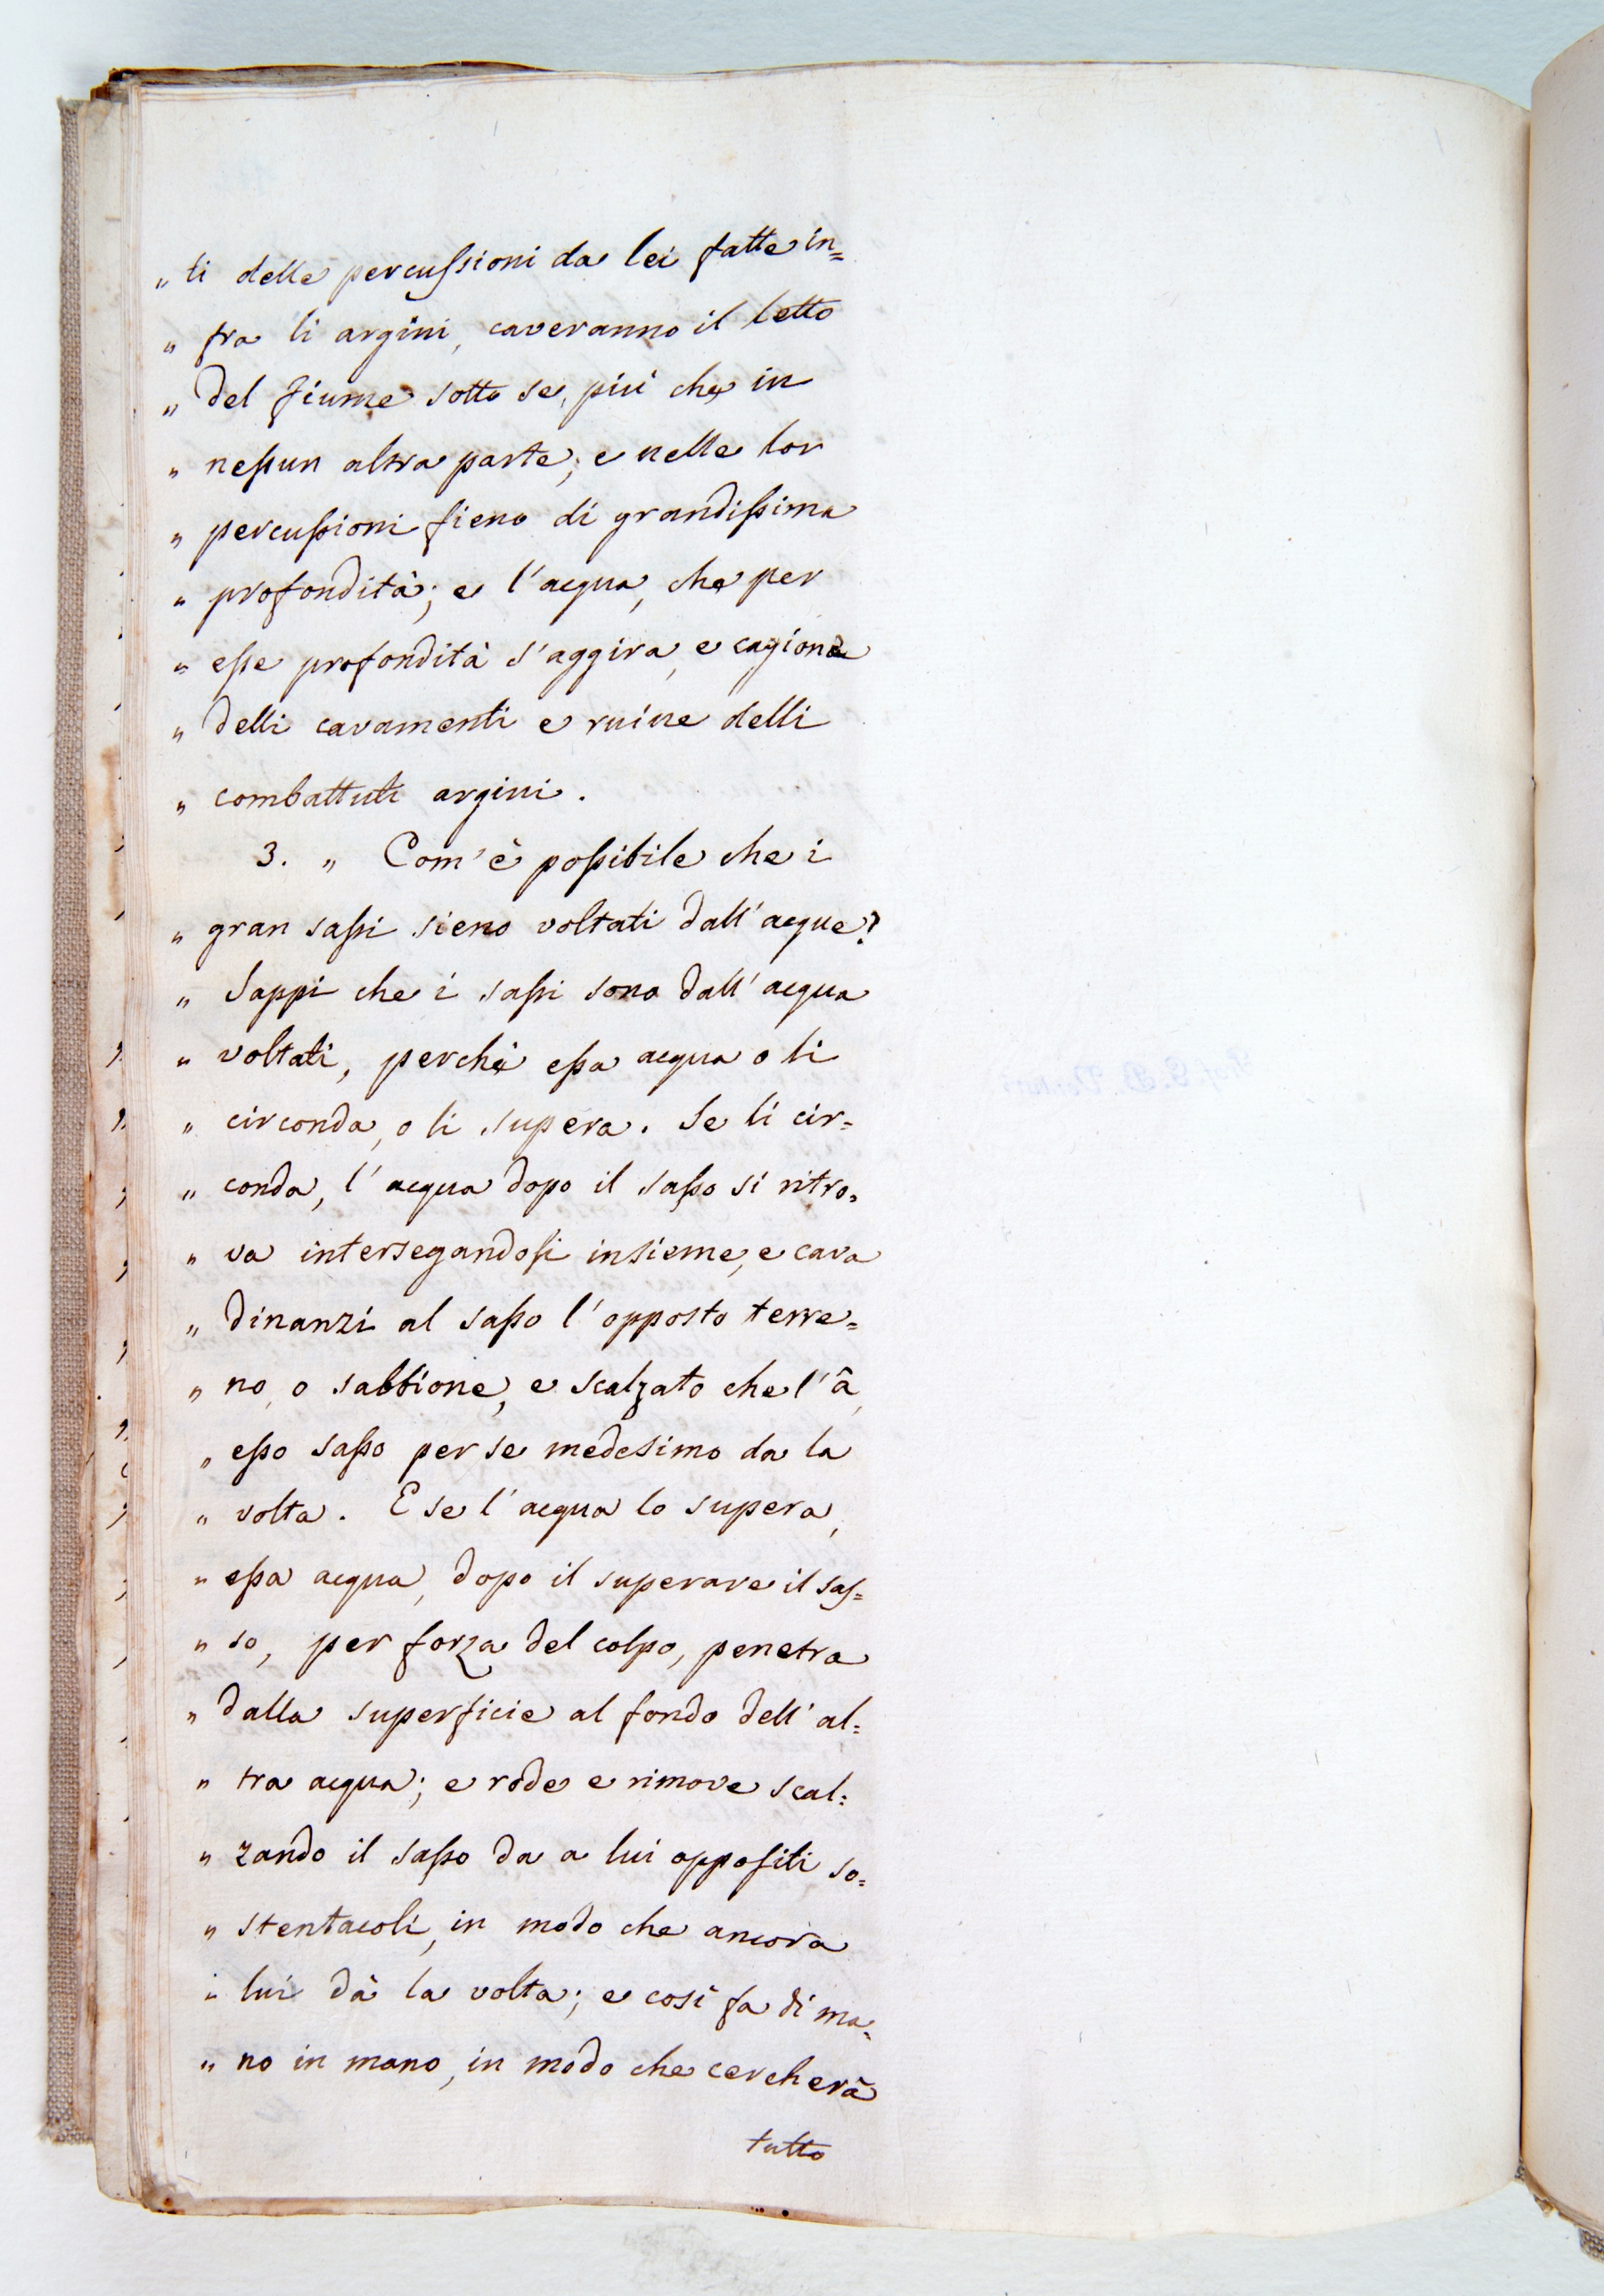 „ ti delle percussioni da lei fatte in=
„ fra li argini, caveranno il letto
„ del fiume sotto se, più che in
„ nessun altra parte; e nelle lor
„ percussioni fieno di grandissima
„ profondità; e l'acqua, che per
„ esse profondità s'aggira, e cagione
„ delli cavamenti e ruine delli
„ combattuti argini.
3. „ Com'è possibile che i
„ gran sassi sieno voltati dall'acque?
„ Sappi che i sassi sono dall'acqua
„ voltati, perchè essa acqua o li
„ circonda, o li supera. Se li cir=
„ conda, l'acqua dopo il sasso si ritro=
„ va intersegandosi insieme, e cava
„ dinanzi al sasso l'opposto terre=
„ no, o sabbione, e scalzato che l'à,
„ esso sasso per se medesimo da la
„ volta. E se l'acqua lo supera,
„ essa acqua, dopo il superare il sas=
„ so, per forza del colpo, penetra
„ dalla superficie al fondo dell'al=
„ tra acqua; e rode e rimove scal=
„ zando il sasso da a lui oppositi so=
„ stentacoli, in modo che ancora
„ lui dà la volta; e così fa di ma=
„ no in mano, in modo che cercherà
tutto